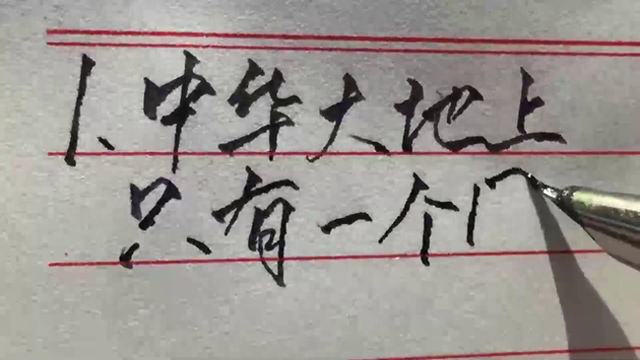 1、中华大地上
只有一个